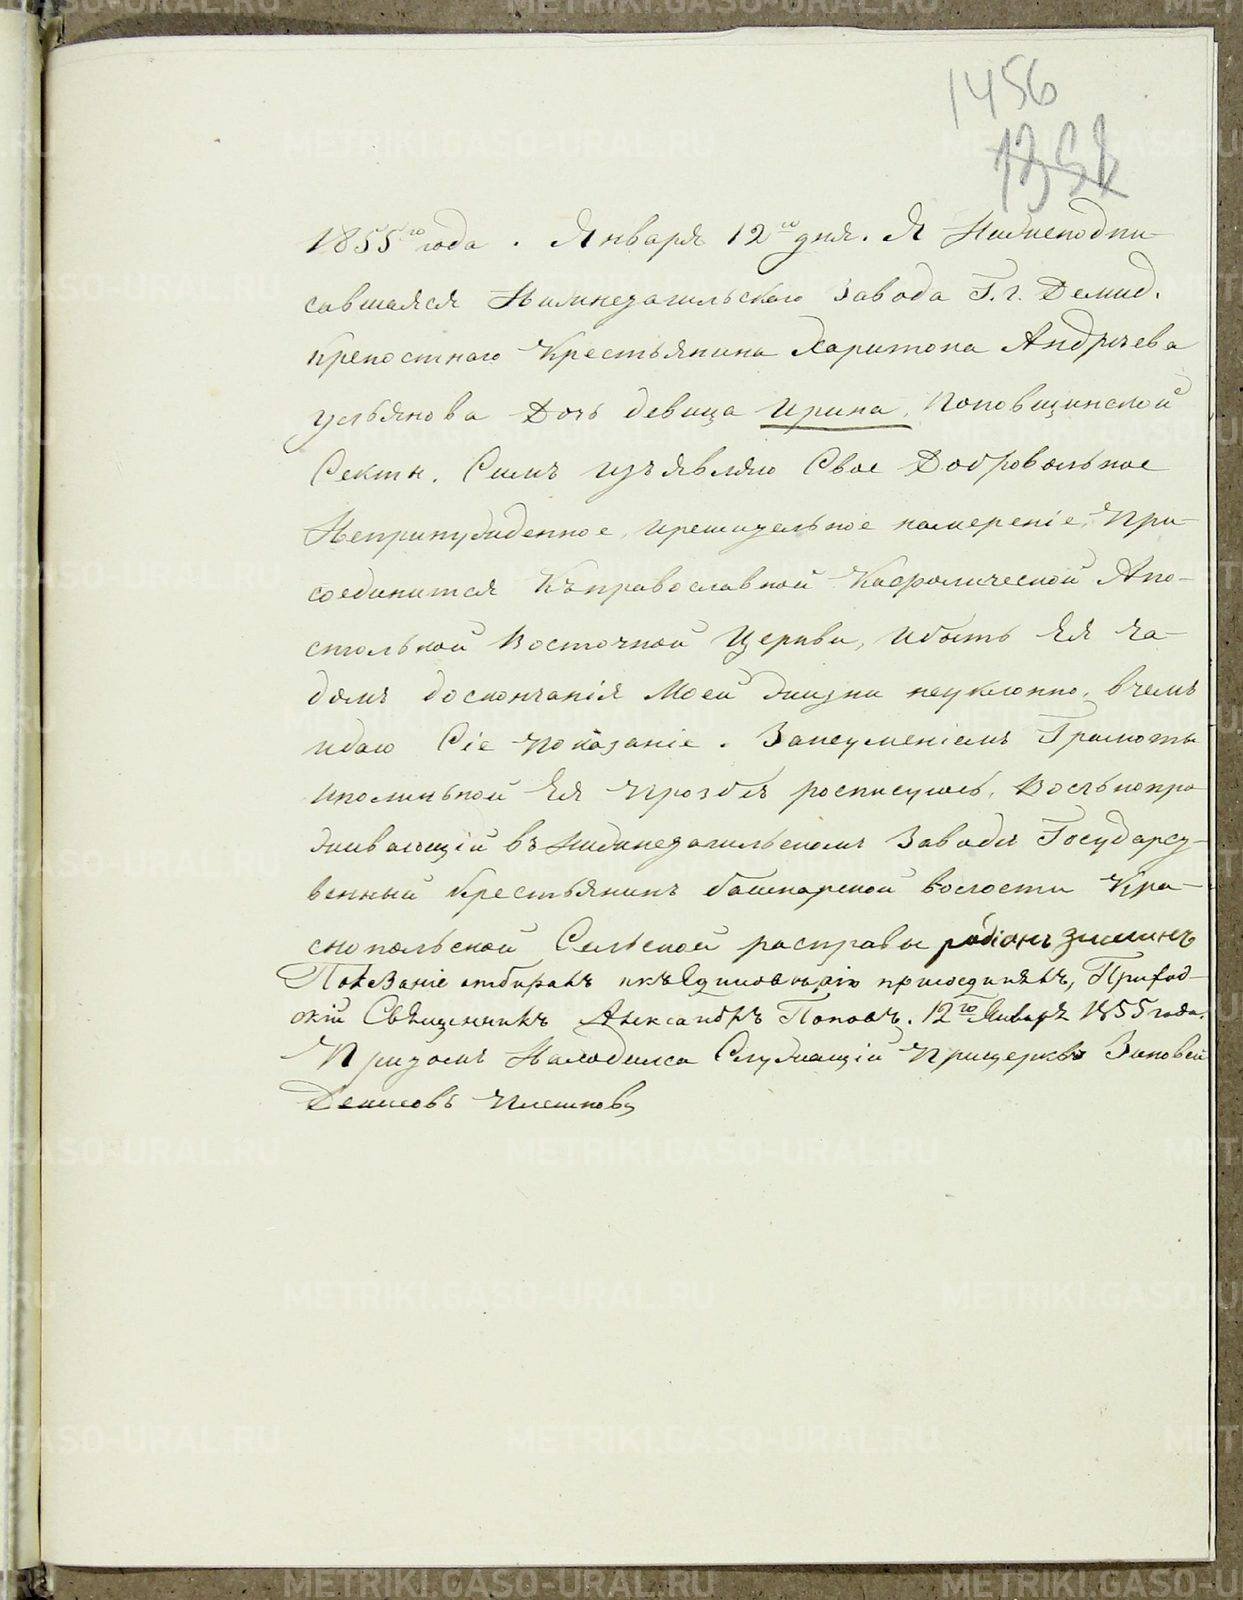 1456
1351
1855го года. Января 12го дня. Я Нижеподпи-
савшаяся Нижнетагильскаго Завода Г.г. Демид.
крепостнаго Крестьянина Харитона Андреева
усьянова Дочь девица Ирина, Поповщинской
Секты. Симъ изъявляю Свое Добровольное
Непринужденное, ирешительное намереніе, При-
соединится Къправославной Кафолической Апо-
стольской Восточной Церкви, ибыть Ея Ча-
домъ доскончанія Моей жизни неуклонно, вчемъ
идаю Сіе показаніе. Занеуменіемъ Грамоты
иполичьной Ея прозбе росписуюсь,
живающій въ Нижнетагильскомъ Заводе Государсу-
венный Крестьянинъ башкарской волости Кра-
снопольской Сельской расправы родіонъ зиминъ
Показаніе отбиралъ икъ Единоверію присоединялъ, Приход-
скій Священникъ Александръ Поповъ. 12го Января 1855 года.
Призомъ Находился Служащій Прицеркве Зиновей
Денисовъ
METRIKI.GASO-URAL.RU